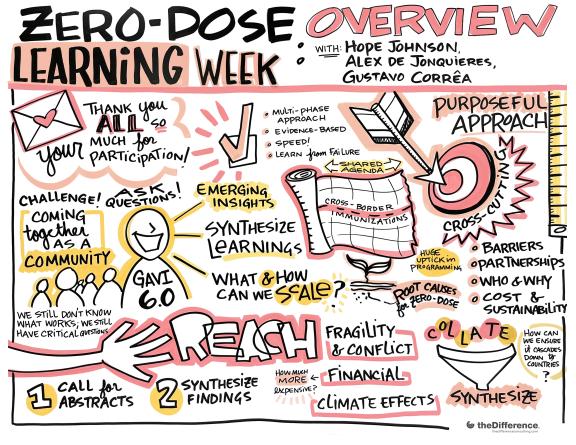 ZERO-DOSE OVERVIEW
LEARNING WEEK
WITH: HOPE JOHNSON,
ALEX DE JONQUIERES,
GUSTAVO CORRÊA
THANK you
ALL so
much for
your PARTICIPATION!
MULTI-PHASE
APPROACH
EVIDENCE-BASED
SPEED!
LEARN from FAILURE
PURPOSEFUL
APPROACH
CROSS-CUTTING
SHARED
AGENDA
CROSS-BORDER
IMMUNIZATIONS
CHALLENGE!
ASK
QUESTIONS!
COMING
together
AS A
COMMUNITY
GAVI
6.0
EMERGING
INSIGHTS
SYNTHESIZE
LEARNINGS
WHAT & HOW
CAN WE SCALE?
HUGE
UPTICK in
PROGRAMMING
ROOT CAUSES
for ZERO-DOSE
BARRIERS
PARTNERSHIPS
WHO & WHY
COST &
SUSTAINABILITY
WE STILL DON'T KNOW
WHAT WORKS; WE STILL
HAVE CRITICAL QUESTIONS
REACH
FRAGILITY
& CONFLICT
HOW MUCH
MORE
EXPENSIVE?
FINANCIAL
CLIMATE EFFECTS
1 CALL for
ABSTRACTS
2 SYNTHESIZE
FINDINGS
COLLATE
SYNTHESIZE
HOW CAN
WE ENSURE
it CASCADES
DOWN to
COUNTRIES
?
theDifference.